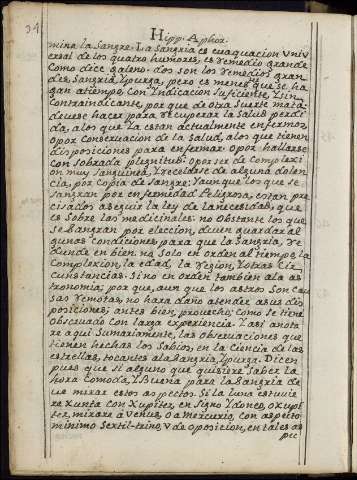 34
Hipp. Aphor.
mina la Sangre. La Sangria es euaquacion vniu
ersal de los quatro humores, es remedio grande
Como dice galeno. dos son los remedios gran
des, Sangria, Y purga, pero es menester que se ha
gan atiempo, Con Indicacion suficiente, Y sin
Contraindicante, por que de otra Suerte mata:
deuese hacer para recuperar la Salud perdi
da, alos que la estan actualmente enfermos,
o por Conseruacion de la Salud, alos que tienen
disposiciones para enfermar. o por hallarse
con Sobrada plenitud: o por ser de Complexi
on muy Sanguinea, Y recelarse de alguna dolen
cia, por Copia de Sangre: Y aun que los que se
Sangran por enfermedad Peligrosa, estan pre
cisados aseguir la ley de la necesidad, que
es Sobre las medicinales: no obstante los que
se Sangran por eleccion, deuen guardar al
gunas condiciones para que la Sangria, re
dunde en bien: no Solo en orden al tiempo, la
Complexion, la edad, la region, Y otras Cir
cunstancias: Si no en orden tambien ala as
tronomia; por que, aun que los astros Son Cau
sas remotas, no hara daño atender asus dis
posiciones; antes bien, prouecho; como se tiene
Obseruado con larga experiencia. Y asi anota
re aqui Sumariamente, las obseruaciones que
tienen hechas los Sabios, en la Ciencia de las
estrellas, tocantes ala Sangria, Y purga. Dicen
pues que si alguno que quisiere Saber la
hora Comoda, Y Buena para la Sangria de
ue mirar estos aspectos. Si la luna estuuie
re Xunta con Xupiter, en Signo Ydoneo, o Xupi
ter, mirare à Venus, o a Mercurio, con aspecto
minimo Sextil-trino, v de oposicion, en tales as
pec